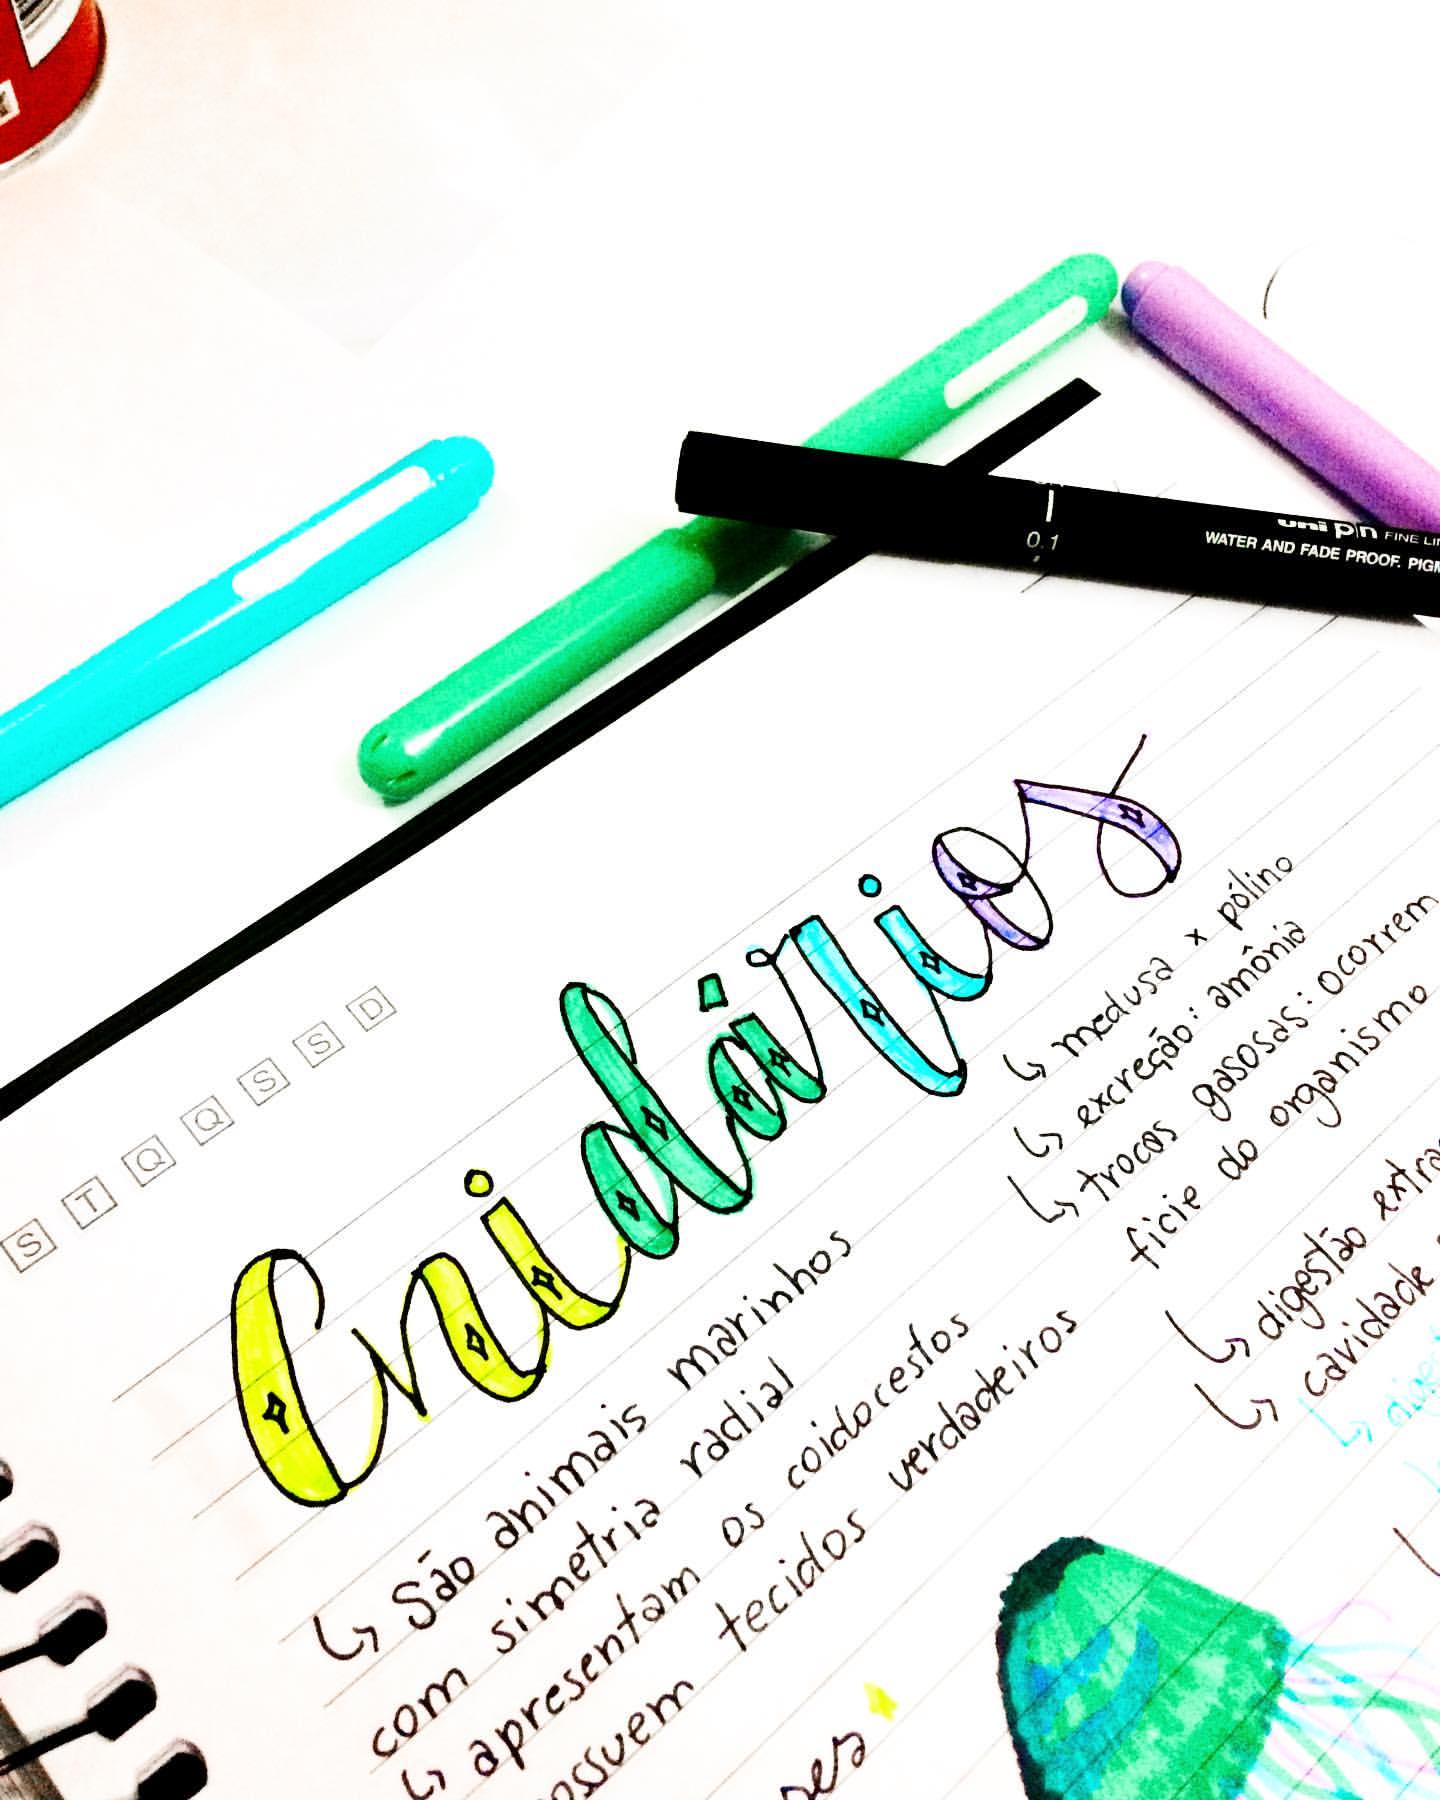 uni pin FINE
WATER AND FADE PROOF.
0.1
S T Q Q S S D
Cnidários
↳ São animais marinhos
com simetria radial
↳ apresentam os coidocestos
possuem tecidos verdadeiros
↳ medusa x pólino
↳ excreção: amônia
↳ trocas gasosas: ocorrem
ficie do organismo
↳ digestão
↳ cavidade